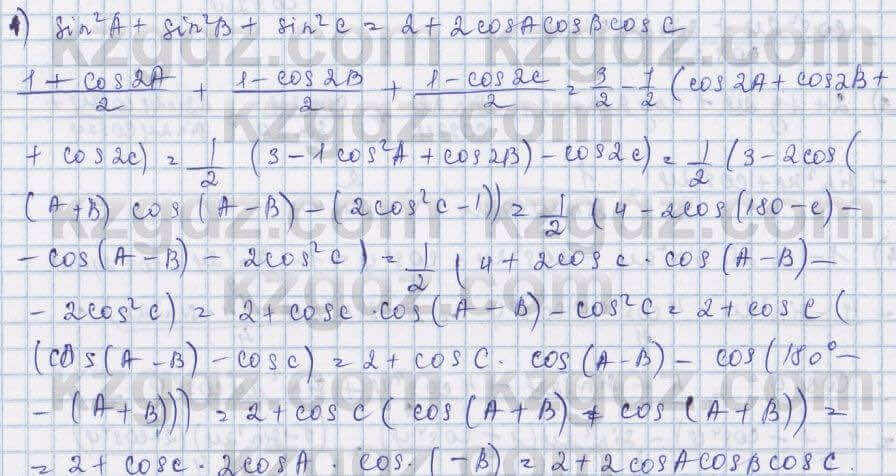 1) sin²A + sin²B + sin²C = 2 + 2cosAcosBcosC
(1 + cos2A)/2 + (1 - cos2B)/2 + (1 - cos2C)/2 = 3/2 - 1/2 (cos2A + cos2B +
+ cos2C) = 1/2 (3 - 1cos²A + cos2B) - cos2C) = 1/2 (3 - 2cos(
(A+B) cos(A-B) - (2cos²C - 1)) = 1/2 (4 - 2cos(180 - C) -
- cos(A - B) - 2cos²C) = 1/2 (4 + 2cosC · cos(A - B) -
- 2cos²C) = 2 + cosC · cos(A - B) - cos²C = 2 + cosC (
(cos(A - B) - cosC) = 2 + cosC · cos(A - B) - cos(180° -
- (A + B))) = 2 + cosC (cos(A + B) + cos(A + B)) =
= 2 + cosC · 2cosA · cos · (-B) = 2 + 2cosAcosBcosC
kzgdz.com